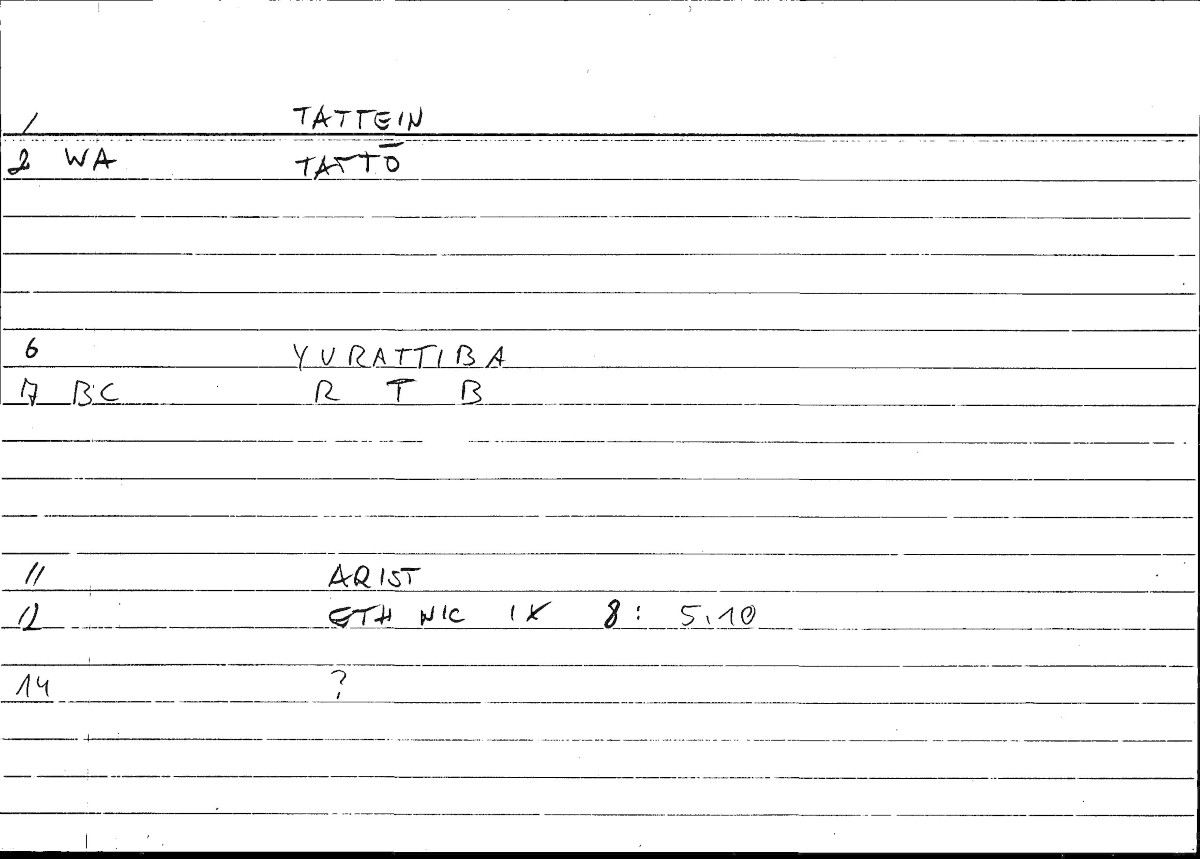 1 TATTEIN
2 WA TATTŌ
6 YURATTIBA
7 BC R T B
11 ARIST
12 ETH NIC IX 8: 5.10
14 ?